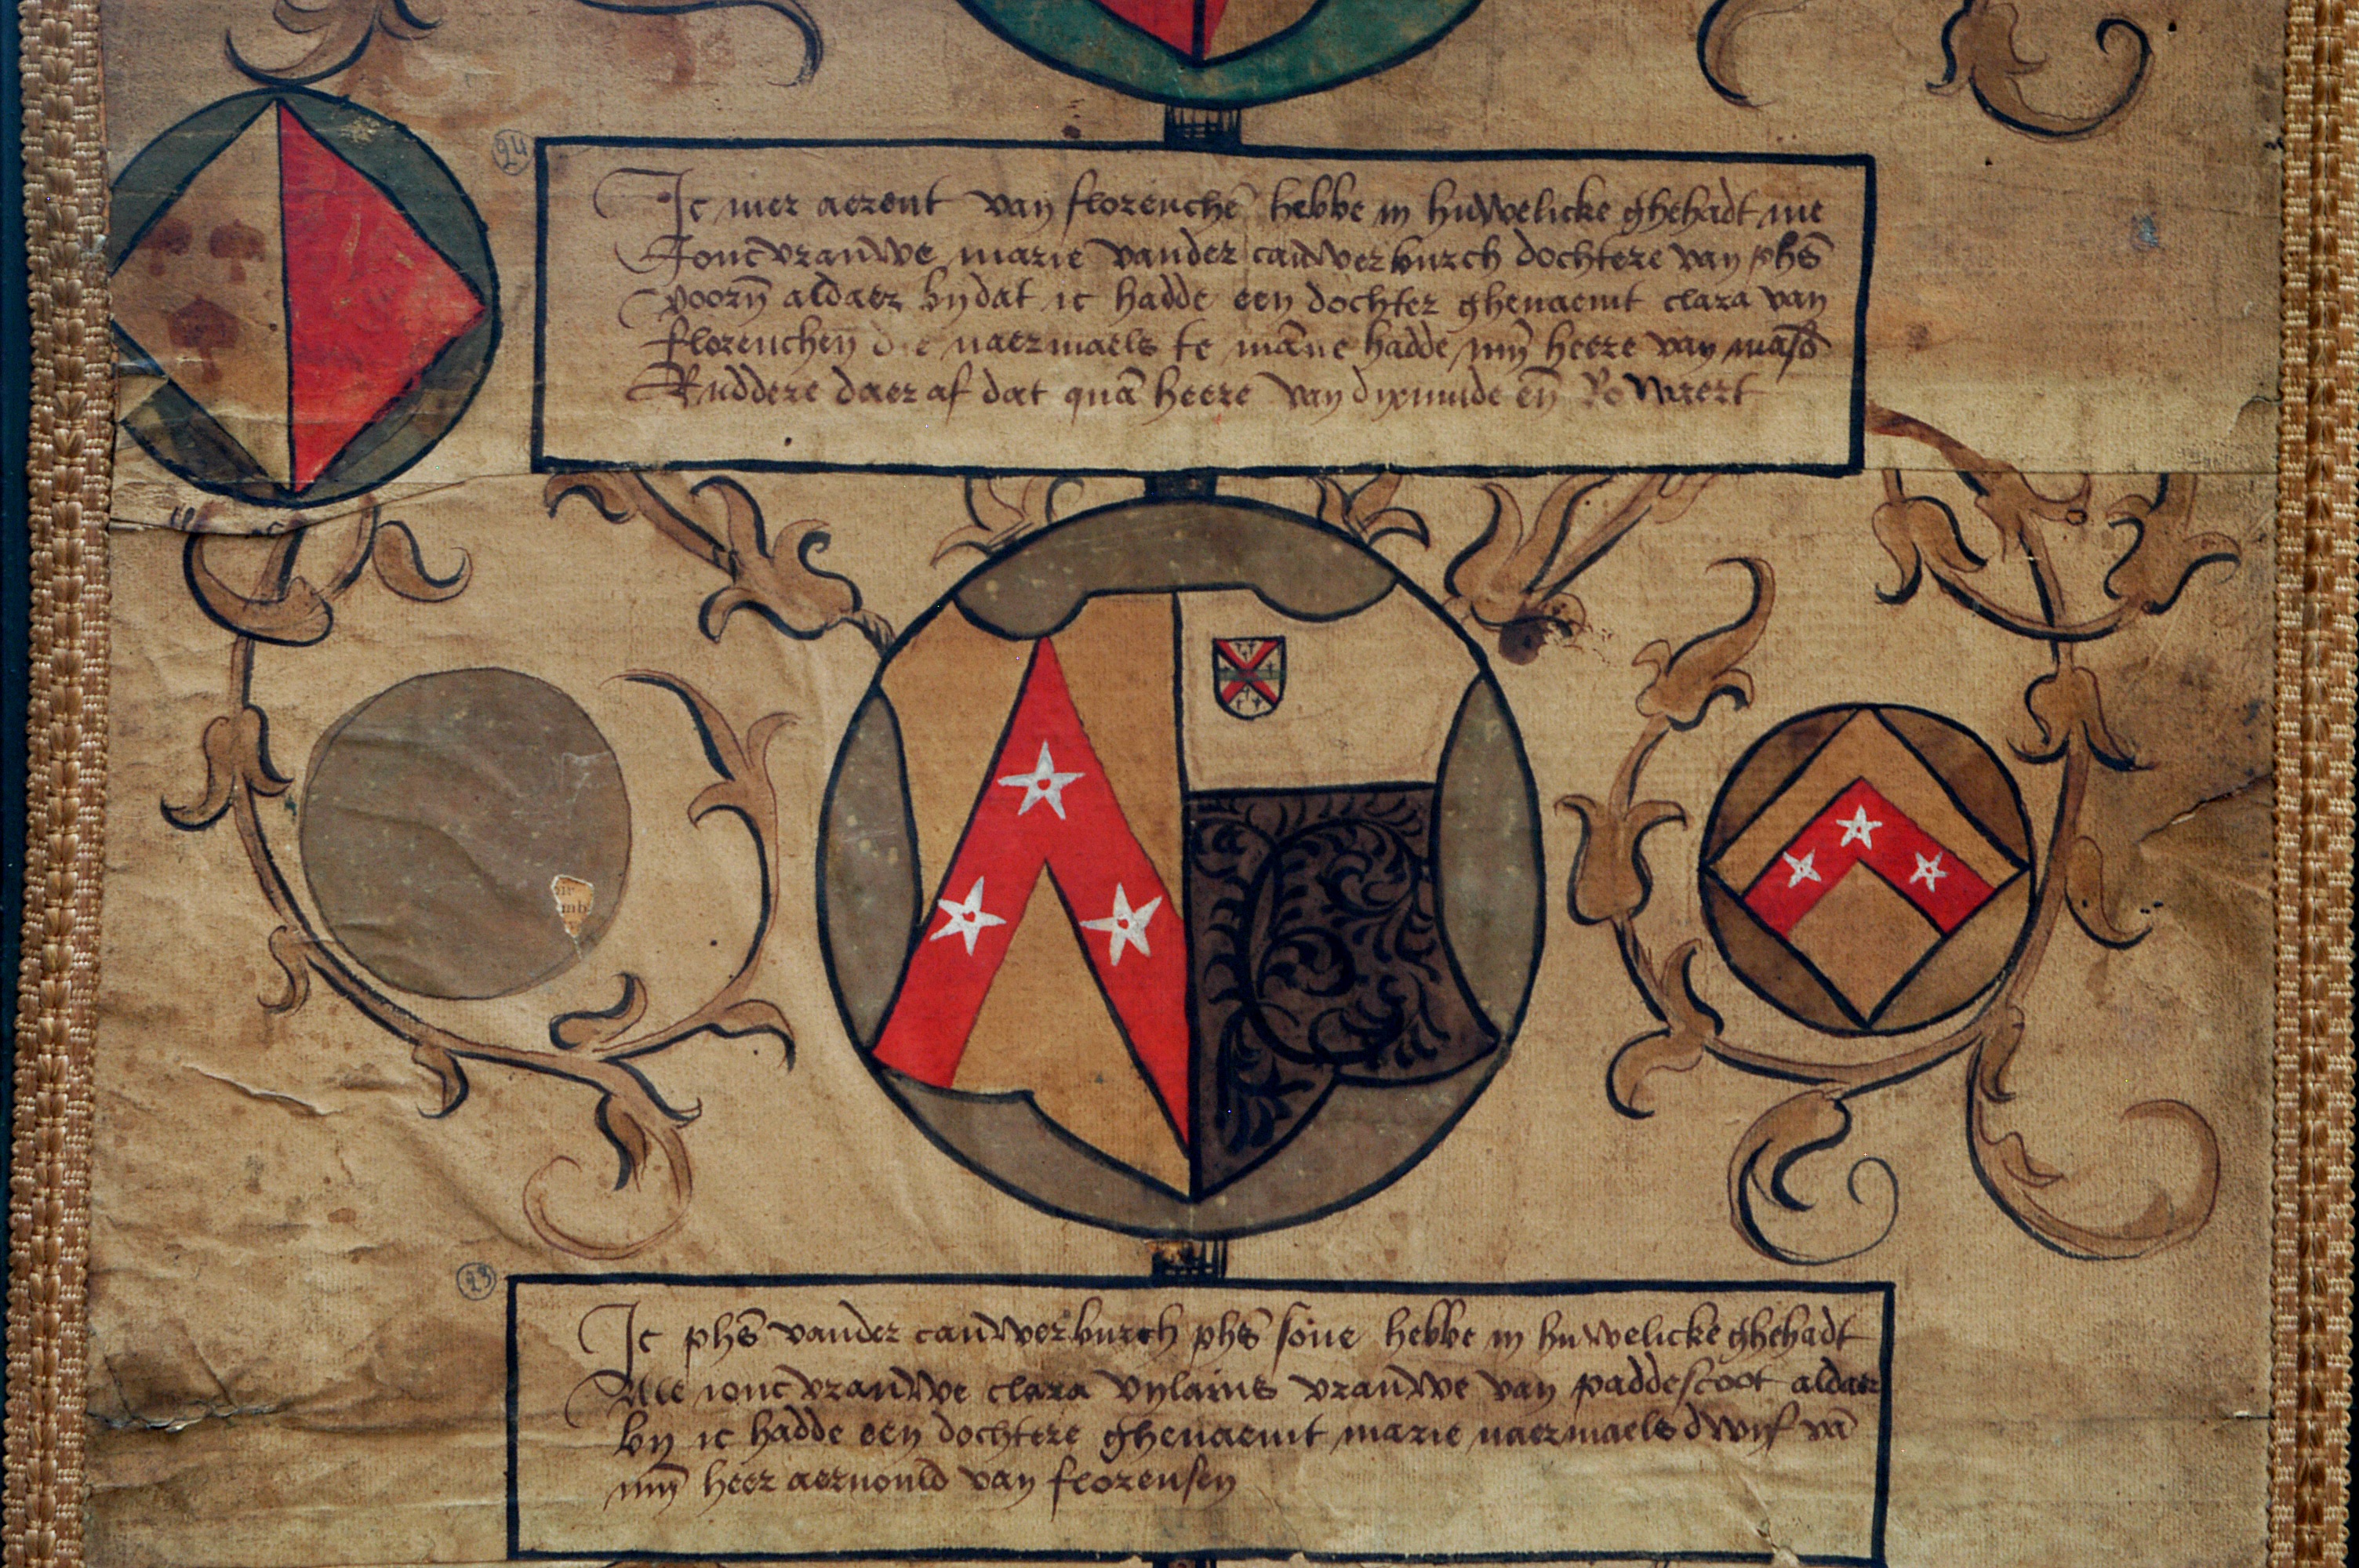 24
Ic mer aerent van florenchē hebbe in huwelicke ghehadt me
Joncvrauwe marie vander cauwerburch dochtere van phs̄
voorn̄ aldaer bydat ic hadde een dochter ghenaemt clara van
florenchen die naermaels te māne hadde myn̄ heere van mass̄
Ruddere daer af dat quā heere van dixmude en̄
23
Ic phs̄ vander cauwerburch phs̄ sone hebbe in huwelicke ghehadt
Me joncvrauwe clara vylains vrauwe van paddescoot aldaer
by ic hadde een dochtere ghenaemt marie naermaels dwyf vā
myn̄ heer aernould van florensen